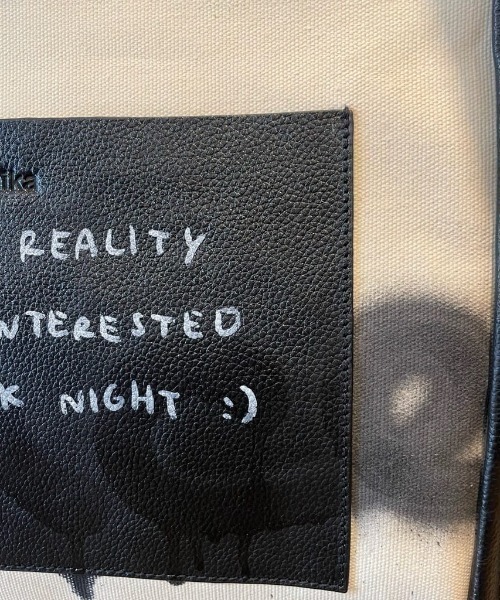 REALITY
NTERESTED
K NIGHT :)